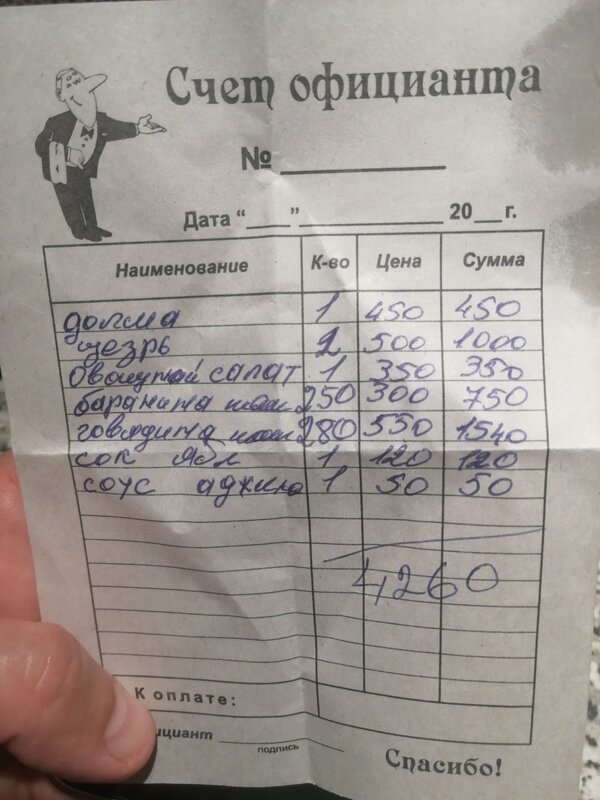 Счет официанта
№
Дата “ ” 20 г.
Наименование К-во Цена Сумма
долма 1 450 450
цезрь 2 500 1000
Овощной салат 1 350 350
баранина 250 300 750
говядина 280 550 1540
сок ябл 1 120 120
соус 1 50 50
4260
К оплате:
ициант
подпись
Спасибо!